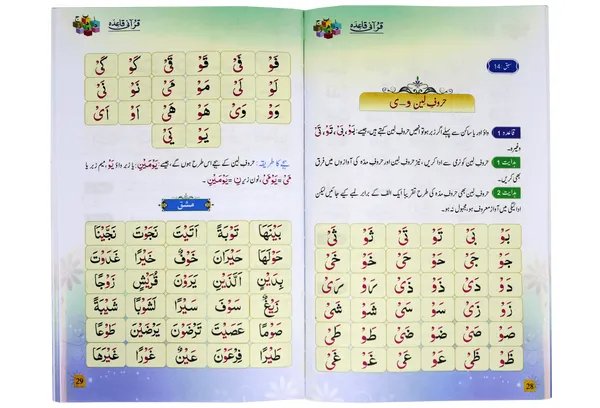 قرآنی قاعدہ
سبق: 14
حروفِ لین و۔ی
قاعدہ 1 واؤ اور یا ساکن سے پہلے اگر زبر ہو تو انھیں حروف لین کہتے ہیں، جیسے: بَوْ، بَیْ، تَوْ، تَیْ
وغیرہ۔
ہدایت 1 حروف لین کو نرمی سے ادا کریں، نیز حروف لین اور حروف مدہ کی آوازوں میں فرق
بھی کریں۔
ہدایت 2 حروف لین بھی حروف مدہ کی طرح تقریباً ایک الف کے برابر لمبے کیے جائیں لیکن
ادائیگی میں آواز معروف ہو، مجہول نہ ہو۔
بَوْ بَیْ تَوْ تَیْ ثَوْ ثَیْ
جَوْ جَیْ حَوْ حَیْ خَوْ خَیْ
دَوْ دَیْ ذَوْ ذَیْ رَوْ رَیْ
زَوْ زَیْ سَوْ سَیْ شَوْ شَیْ
صَوْ صَیْ ضَوْ ضَیْ طَوْ طَیْ
ظَوْ ظَیْ عَوْ عَیْ غَوْ غَیْ
28
قرآنی قاعدہ
فَوْ فَیْ قَوْ قَیْ كَوْ كَیْ
لَوْ لَیْ مَوْ مَیْ نَوْ نَیْ
وَوْ وَیْ هَوْ هَیْ اَوْ اَیْ
یَوْ یَیْ
ہجے کا طریقہ: حروف لین کے ہجے اس طرح ہوں گے، جیسے: یَوْمَیْنِ: یا زبر واؤ یَوْ، میم زبر یا
مَیْ = یَوْمَیْ، نون زیر نِ = یَوْمَیْنِ۔
مشق
بَیْنَهَا تَوْبَةً اَتَیْتَ نَجَوْتَ نَجَّیْنَا
حَوْلَهَا حَیْرَانَ خَوْفٌ خَیْرًا غَدَوْتَ
بِدَیْنٍ الَّذَیْنِ یَرَوْنَ قُرَیْشٍ زَوْجًا
زَیْغٌ سَوْفَ سَیْرًا لَشَوْبًا شَیْبَةً
صَوْمًا عَصَیْتَ تَرْضَوْنَ یَرْضَیْنَ طَوْعًا
طَیْرًا فِرْعَوْنَ عَیْنٌ غَوْرًا غَیْرَهَا
29